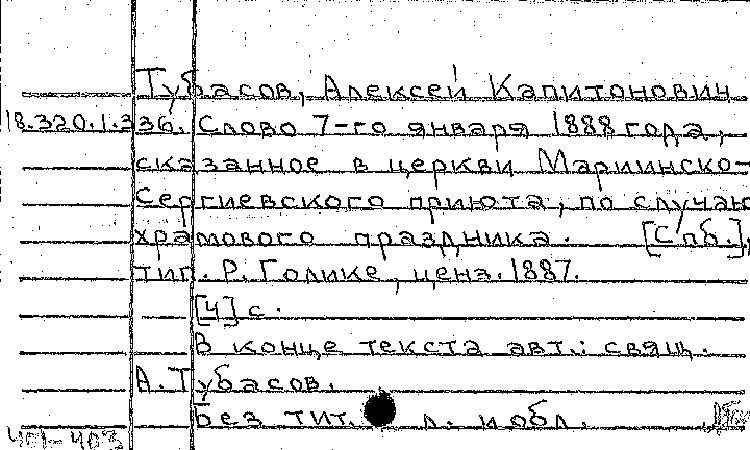 Тубасов, Алексей Капитонович
18.320.1.336. Слово 7-го января 1888 года,
сказанное в церкви Мариинско-
Сергиевского приюта, по случаю
храмового праздника. [Спб.],
тип. Р. Голике, ценз. 1887.
[4] с.
В конце текста авт.: свящ.
А. Тубасов.
Без тит. л. и обл.
401-403